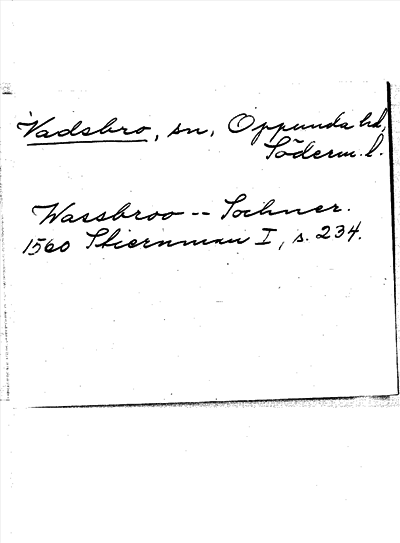 Vadsbro, sn, Oppunda hd,
Söderm. l.
Wassbroo -- Sochner.
1560 Stiernman I, s. 234.